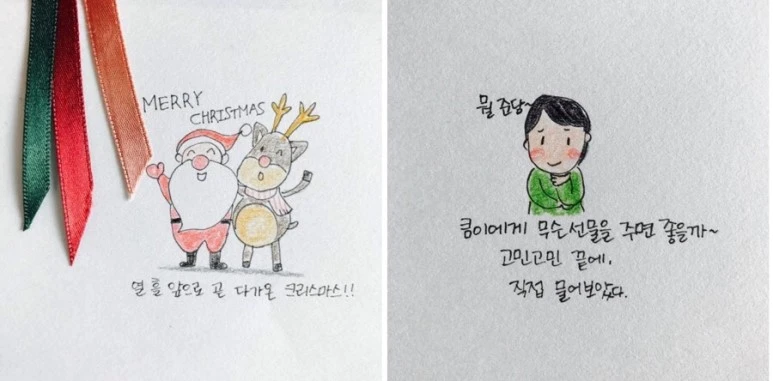 MERRY
CHRISTMAS
열흘 앞으로 곧 다가온 크리스마스!!
뭘 준담~
콩이에게 무슨 선물을 주면 좋을까~
고민고민 끝에,
직접 물어보았다.